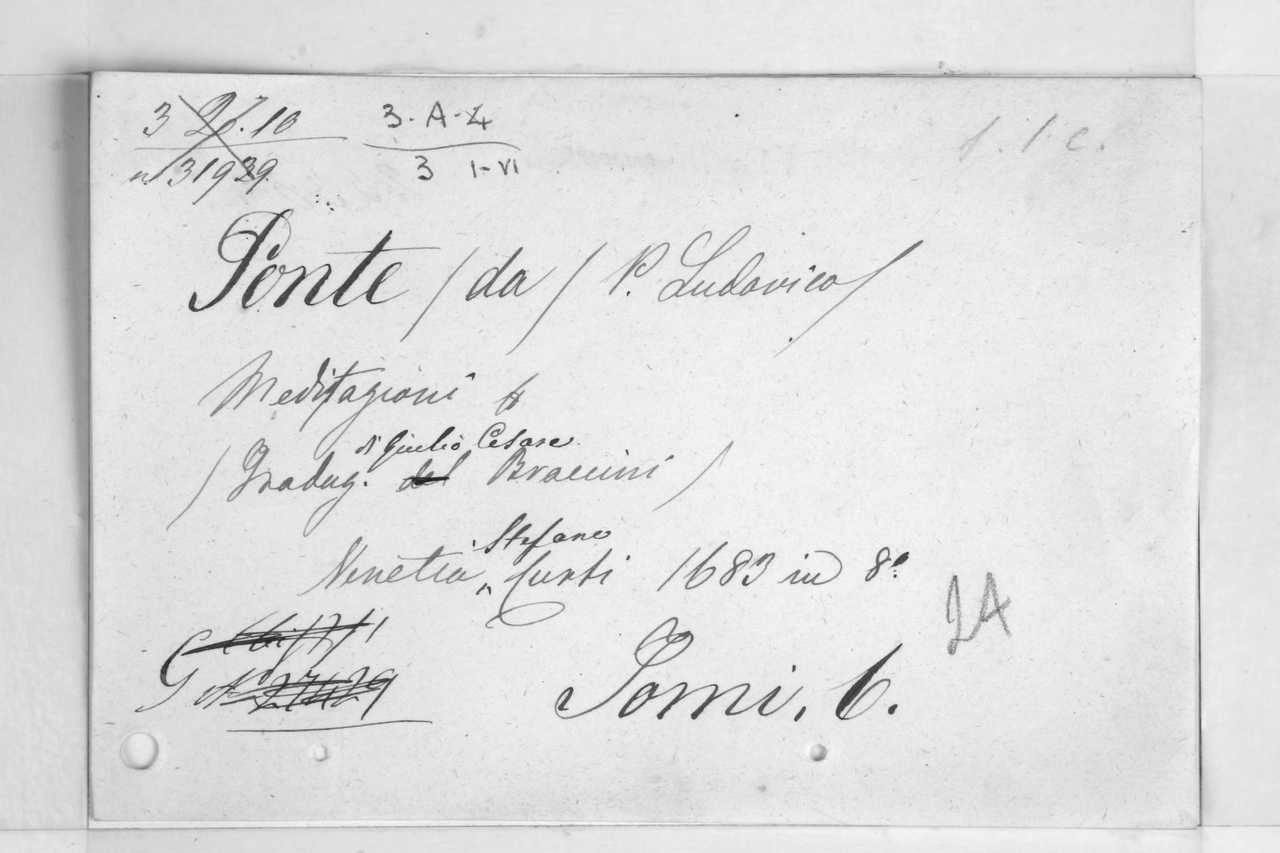 3 27.10 3-A-4
n 31929 3 I-VI
s. 1. c.
Ponte (da) P. Ludovico)
Meditazioni
di Giulio Cesare
(Traduz. del Braccini)
Stefano
Venetia, Curti 1683 in 8º
2A
Tomi, 6.